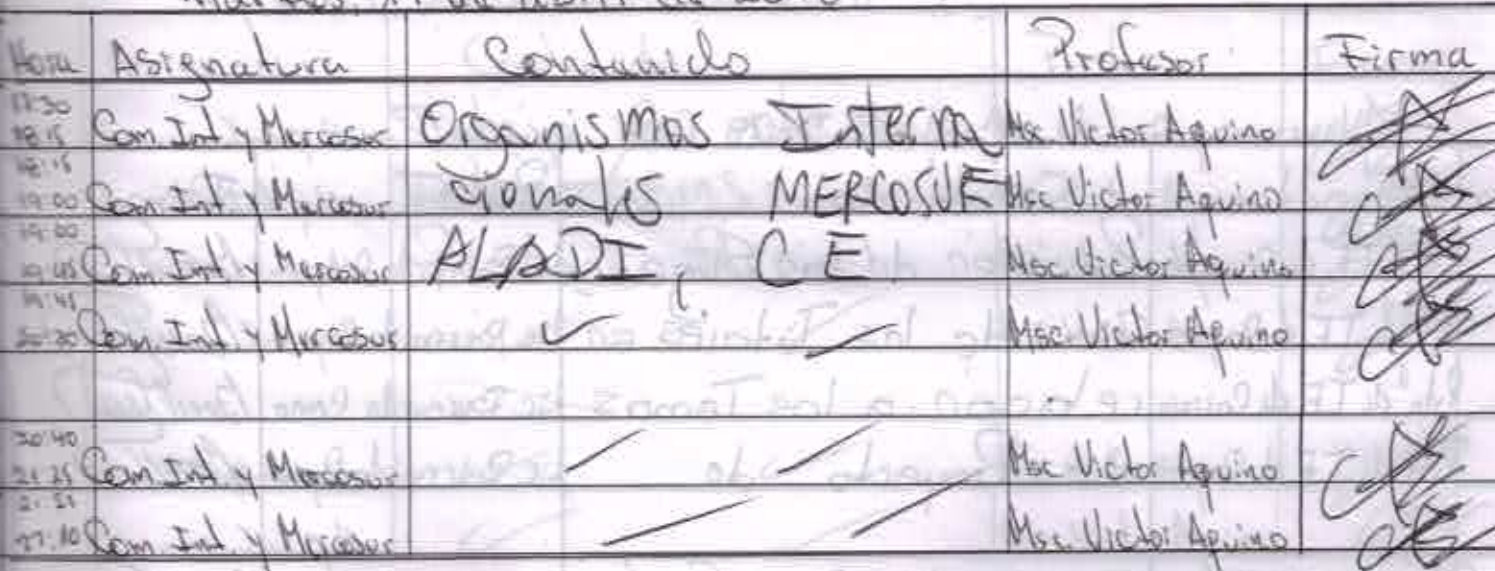 Martes, de abril de
Hora Asignatura Contenido Profesor Firma
17:30
18:15 Com. Int. y Mercosur Organismos Interna Msc. Victor Aquino
18:15
19:00 Com. Int. y Mercosur cionales MERCOSUR Msc. Victor Aquino
19:00
19:45 Com. Int. y Mercosur ALADI, CE Msc. Victor Aquino
19:45
20:30 Com. Int. y Mercosur Msc. Victor Aquino
20:40
21:25 Com. Int. y Mercosur Msc. Victor Aquino
Com. Int. y Mercosur Msc. Victor Aquino